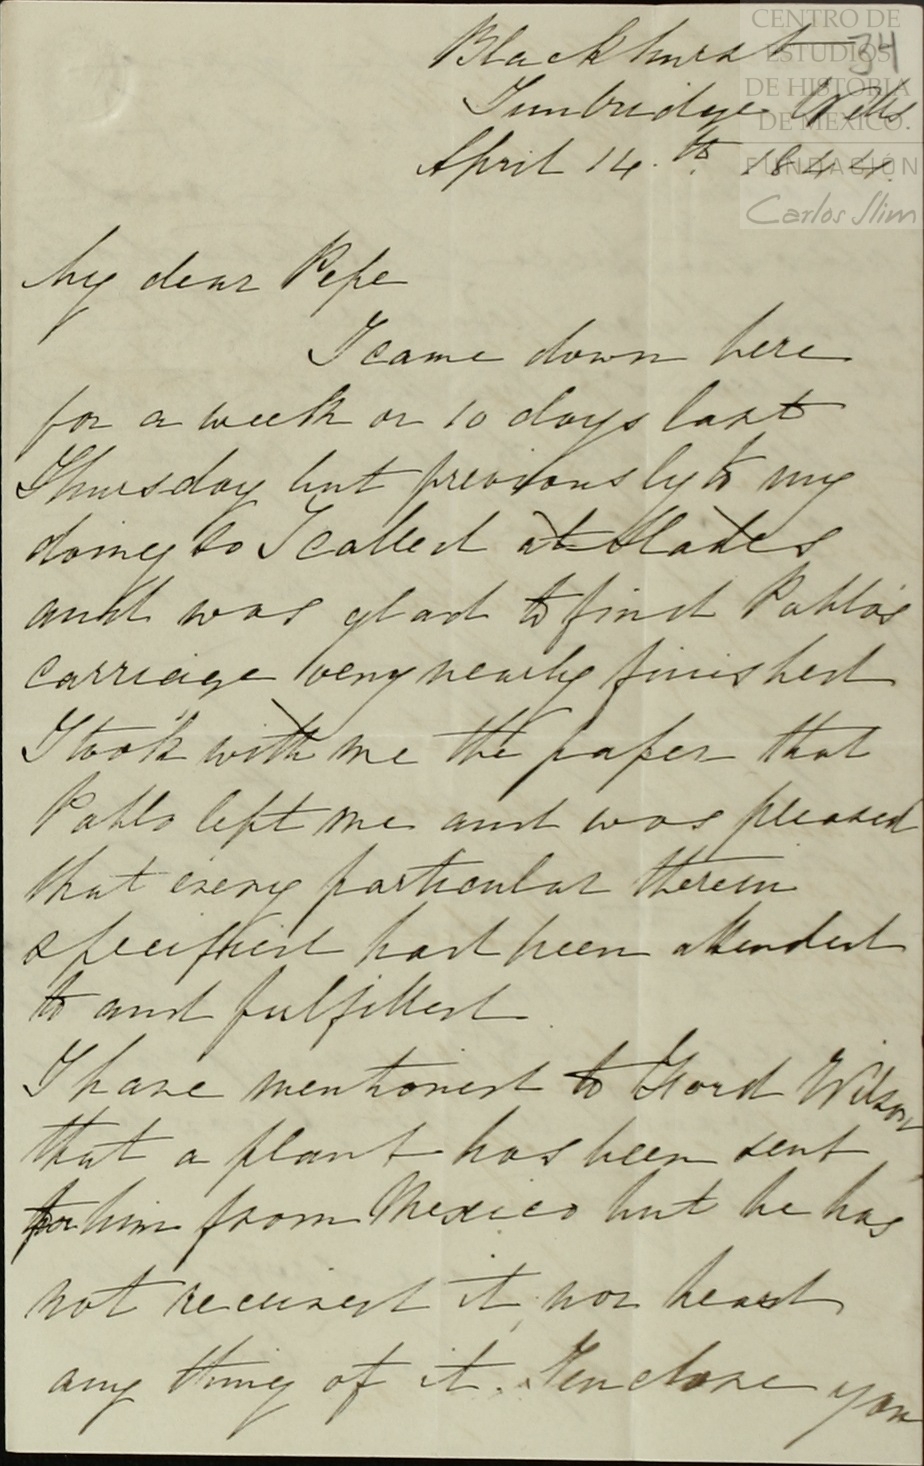 CENTRO DE
ESTUDIOS
DE HISTORIA
DE MÉXICO.
FUNDACIÓN
Carlos Slim
34
Blackhurst
Tunbridge Wells
April 14.th 1844.
My dear Pepe
I came down here
for a week or 10 days last
Thursday but previously to my
doing so I called at
and was glad to find Pablo's
carriage very nearly finished
I took with me the paper that
Pablo left me and was pleased
that every particular therein
specified had been attended
to and fulfilled
I have mentioned to Wilson
that a plant has been sent
for him from Mexico but he has
not received it nor heard
any thing of it. I enclose you